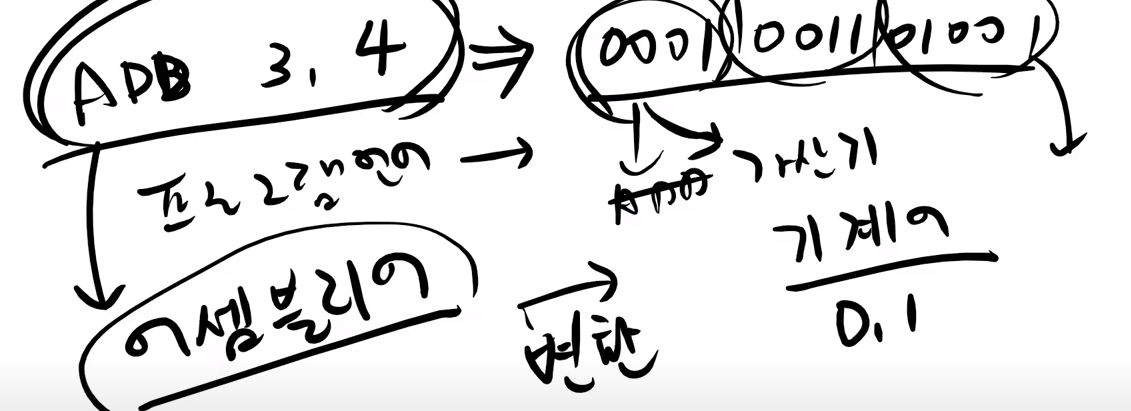 ADD 3, 4 ⇒ 0001 0011 01001
프로그램언어 → 가산기
기계어
어셈블리어
변환
0, 1